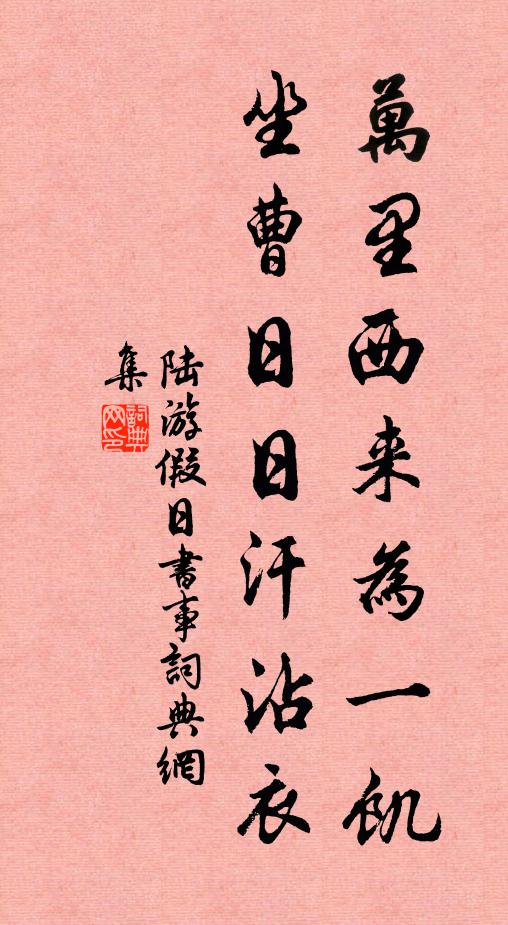 萬里西来為一飢
坐曹日日汗沾衣
陆游假日書事詞典網
集
詞典网印